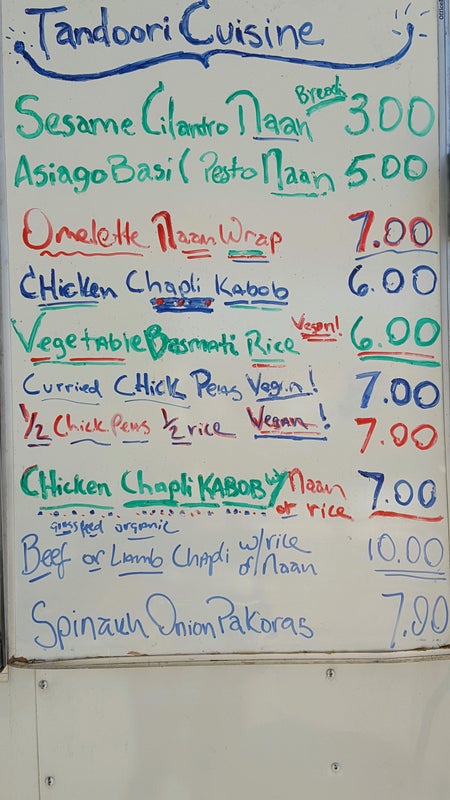 Tandoori Cuisine
Sesame Cilantro Naan Bread 3.00
Asiago Basil Pesto Naan 5.00
Omelette Naan Wrap 7.00
CHicken Chapli Kabob 6.00
Vegetable Basmati Rice Vegan! 6.00
Curried CHICK Peas Vegan! 7.00
1/2 Chick Peas 1/2 rice Vegan! 7.00
CHicken Chapli KABOB w/ Naan or rice 7.00
grassfed organic
Beef or Lamb Chapli w/rice or Naan 10.00
Spinach Onion Pakoras 7.00